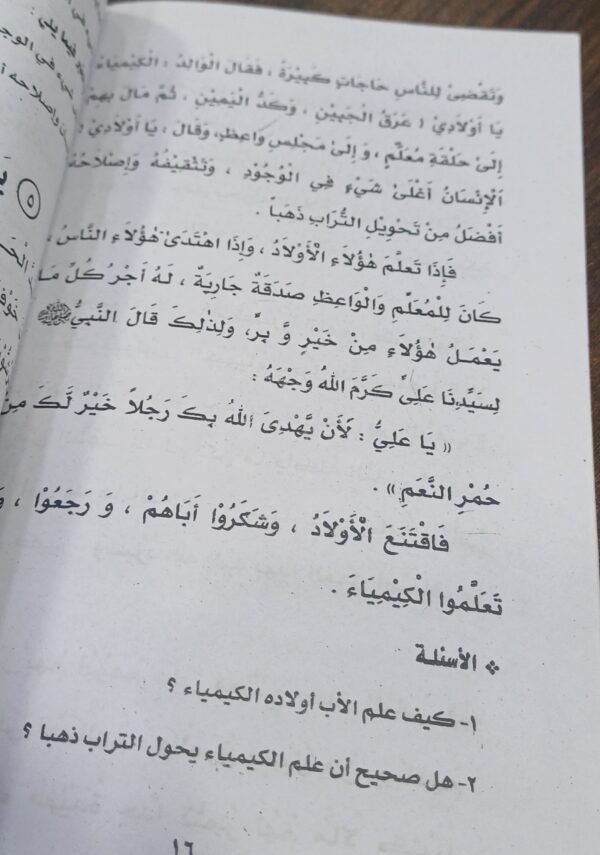 وَتَقْضِىْ لِلنَّاسِ حَاجَاتٍ كَبِيْرَةً ، فَقَالَ الْوَالِدُ : اَلْكِيْمِيَاءُ
يَا أَوْلَادِيْ ! عَرَقُ الْجَبِيْنِ ، وَكَدُّ الْيَمِيْنِ ، ثُمَّ مَالَ بِهِمْ
إِلَىْ حَلْقَةِ مُعَلِّمٍ ، وَإِلىْ مَجْلِسِ وَاعِظٍ، وَقَالَ : يَا أَوْلَادِيْ !
اَلْإِنْسَانُ أَغْلَىْ شَيْءٍ فِي الْوُجُوْدِ ، وَتَثْقِيْفُهُ وَإِصْلَاحُهُ
أَفْضَلُ مِنْ تَحْوِيْلِ التُّرَابِ ذَهَباً .
فَإِذَا تَعَلَّمَ هٰؤُلَاءِ الْأَوْلَادُ ، وَإِذَا اهْتَدَىْ هٰؤُلَاءِ النَّاسُ ،
كَانَ لِلْمُعَلِّمِ وَالْوَاعِظِ صَدَقَةٌ جَارِيَةٌ ، لَهُ أَجْرُ كُلِّ مَا
يَعْمَلُ هٰؤُلَاءِ مِنْ خَيْرٍ وَّ بِرٍّ، وَلِذٰلِكَ قَالَ النَّبِيُّ ﷺ
لِسَيِّدِنَا عَلِيٍّ كَرَّمَ اللهُ وَجْهَهُ :
« يَا عَلِيُّ : لَأَنْ يَّهْدِىَ اللهُ بِكَ رَجُلاً خَيْرٌ لَّكَ مِنْ
حُمْرِ النَّعَمِ» .
فَاقْتَنَعَ الْأَوْلَادُ ، وَشَكَرُوْا أَبَاهُمْ ، وَ رَجَعُوْا ،
تَعَلَّمُوا الْكِيْمِيَاءَ .
❖ الأسئلة
١- كيف علم الأب أولاده الكيمياء ؟
٢- هل صحيح أن علم الكيمياء يحول التراب ذهبا ؟
١٦